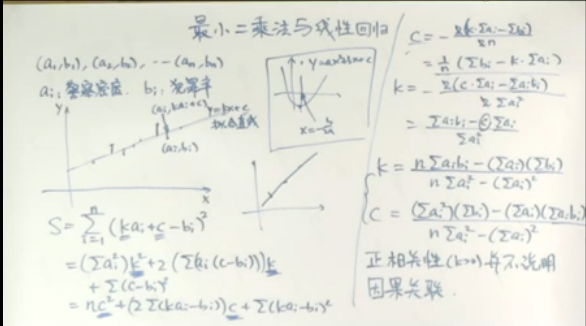 最小二乘法与线性回归
(a₁,b₁), (a₂,b₂), --- (aₙ,bₙ)
aᵢ: 警察密度. bᵢ: 犯罪率
y
(aᵢ, kaᵢ+c)
y=kx+c
拟合直线
(aᵢ,bᵢ)
x
y=ax²+bx+c
x=-b/2a
S=∑ᵢ₌₁ⁿ (kaᵢ+c-bᵢ)²
=(∑aᵢ²)k²+2(∑(aᵢ(c-bᵢ)))k
+∑(c-bᵢ)²
=nc²+(2∑(kaᵢ-bᵢ))c+∑(kaᵢ-bᵢ)²
c=-2(k·∑aᵢ-∑bᵢ)/2n
=1/n(∑bᵢ-k·∑aᵢ)
k=-2(c·∑aᵢ-∑aᵢbᵢ)/2∑aᵢ²
=(∑aᵢbᵢ-c∑aᵢ)/∑aᵢ²
k=(n∑aᵢbᵢ-(∑aᵢ)(∑bᵢ))/(n∑aᵢ²-(∑aᵢ)²)
c=((∑aᵢ²)(∑bᵢ)-(∑aᵢ)(∑aᵢbᵢ))/(n∑aᵢ²-(∑aᵢ)²)
正相关性(k>0)并不说明
因果关联.